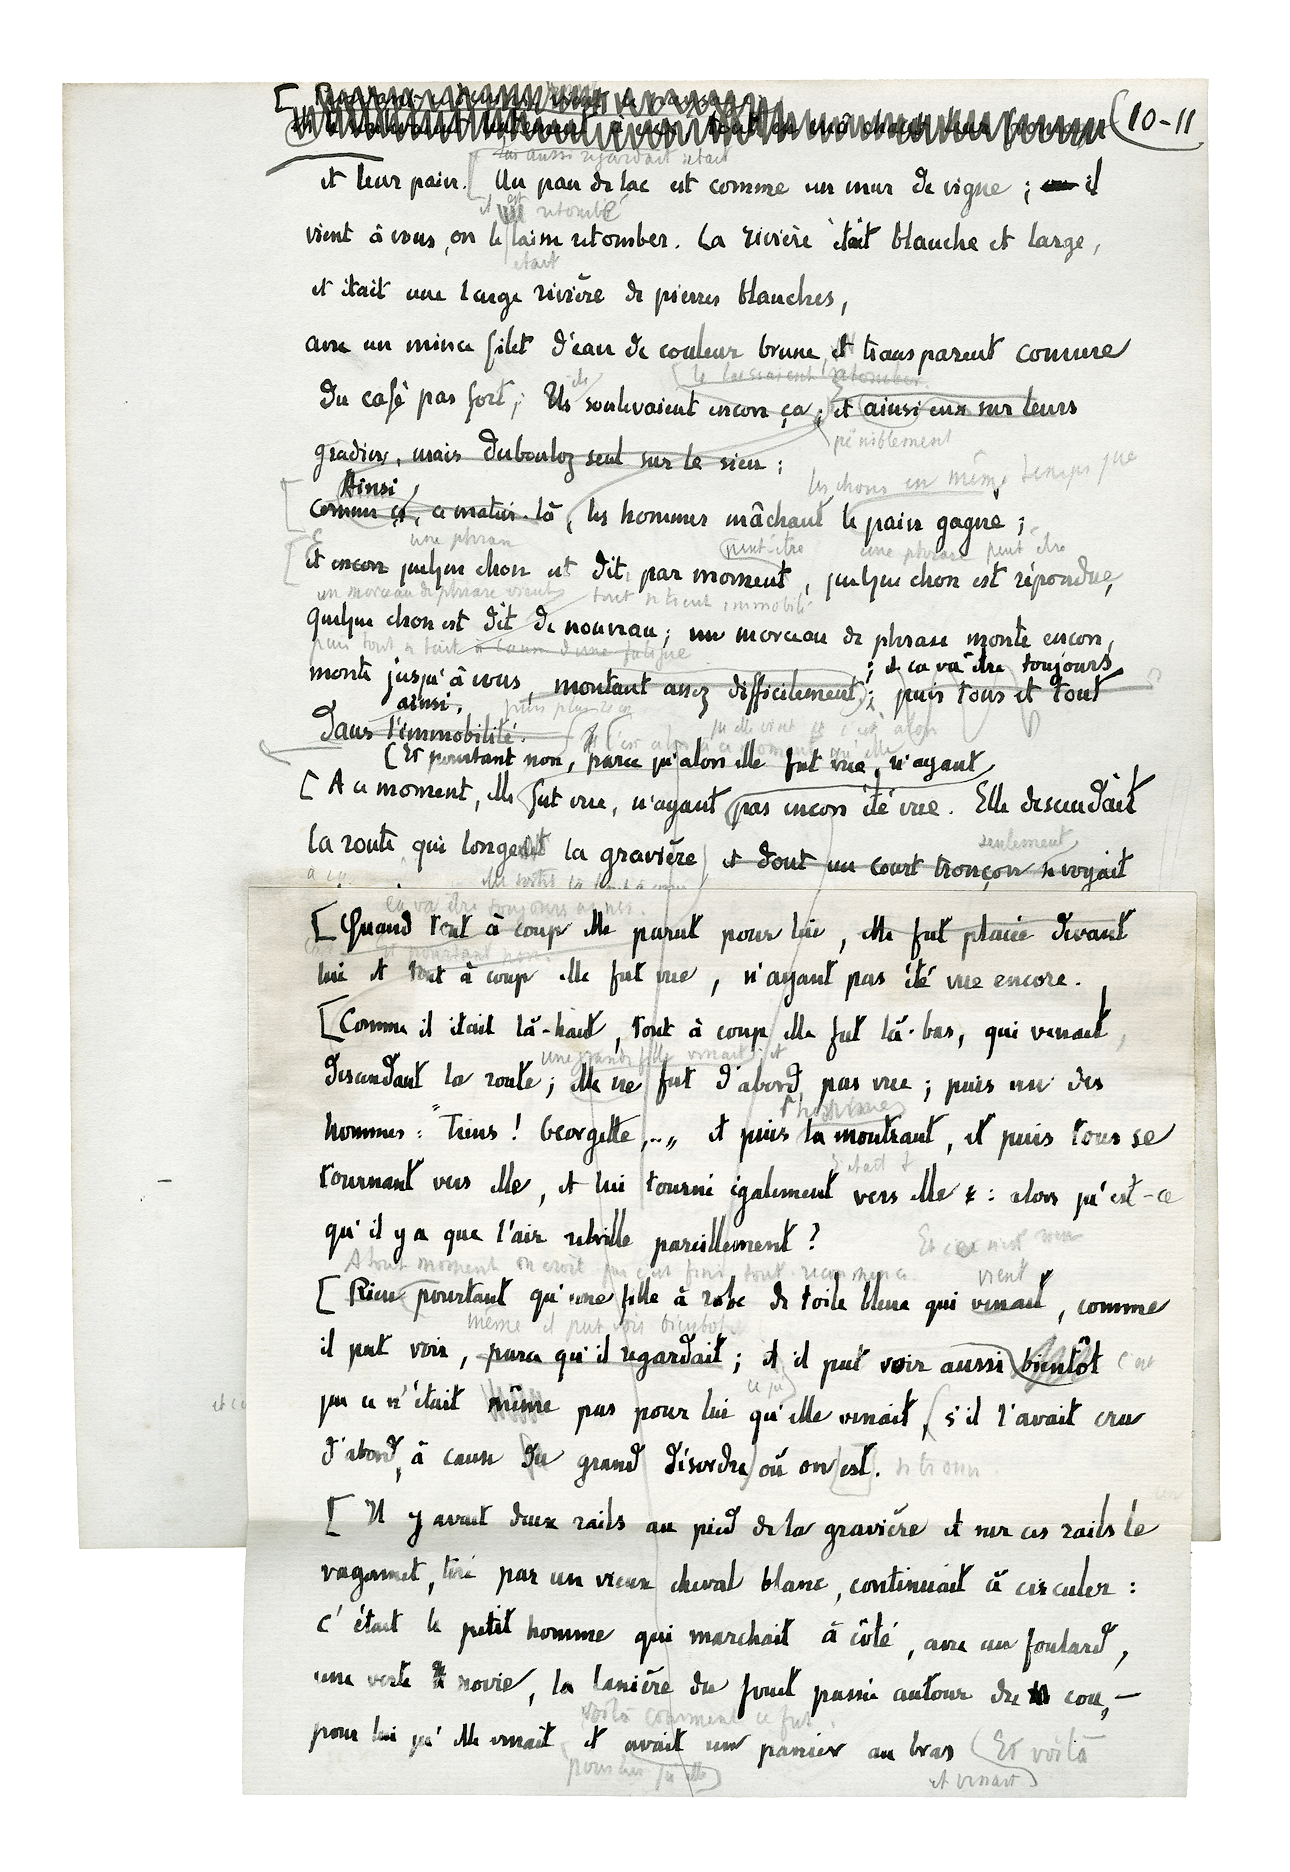 10-11
et leur pain. Un pan de lac est comme un mur de vigne ; il
vient à vous, on le laisse retomber. La rivière était blanche et large,
et était une large rivière de pierres blanches,
avec un mince filet d'eau de couleur brune et transparent comme
du café pas fort ; Ils soulevaient encore ça ; et ainsi eux sur leurs
péniblement
gradins, mais Dubouloz seul sur le sien :
les choses en même temps que
Ainsi
comme ça, ce matin-là, les hommes mâchant le pain gagné ;
une phrase peut-être une phrase peut être
Et encore quelque chose est dit, par moment, quelque chose est répondu,
un morceau de phrase vient tout se tient immobile
quelque chose est dit de nouveau ; un morceau de phrase monte encore,
puis tout se tait à cause d'une fatigue
; et ça va être toujours
monte jusqu'à vous, montant assez difficilement ; puis tous et tout
ainsi,
dans l'immobilité.
(Et pourtant non, parce qu'alors elle fut vue, n'ayant
[ A ce moment, elle fut vue, n'ayant pas encore été vue. Elle descendait
seulement
la route qui longeait la gravière et dont un court tronçon se voyait
ça va être toujours
[ Quand tout à coup elle parut pour lui, elle fut placée devant
et pourtant non.
lui et tout à coup elle fut vue, n'ayant pas été vue encore.
[ Comme il était là-haut, tout à coup elle fut là-bas, qui venait,
une grande fille venait, et
descendant la route ; elle ne fut d'abord pas vue ; puis un des
hommes : "Tiens ! Georgette,..„ et puis la montrant, et puis tous se
s'étant
tournant vers elle, et lui tourné également vers elle : alors qu'est-ce
qu'il y a que l'air rebrille pareillement ?
A tout moment on croit que c'est fini, tout recommence.
vient
[ Rien pourtant qu'une fille à robe de toile bleue qui venait, comme
même il put voir bientôt
il put voir, parce qu'il regardait ; et il put voir aussi bientôt c'est
ce ne
que ce n'était même pas pour lui qu'elle venait, s'il l'avait cru
d'abord, à cause du grand désordre où on est. se trouve.
[ Il y avait deux rails au pied de la gravière et sur ces rails le
wagonnet, tiré par un vieux cheval blanc, continuait à circuler :
c'était le petit homme qui marchait à côté, avec un foulard,
une veste noire, la lanière du fouet passée autour du cou, —
voilà comment ce fut
pour lui qu'elle venait et avait un panier au bras (Et voilà
pour lui qu'elle) et venait)